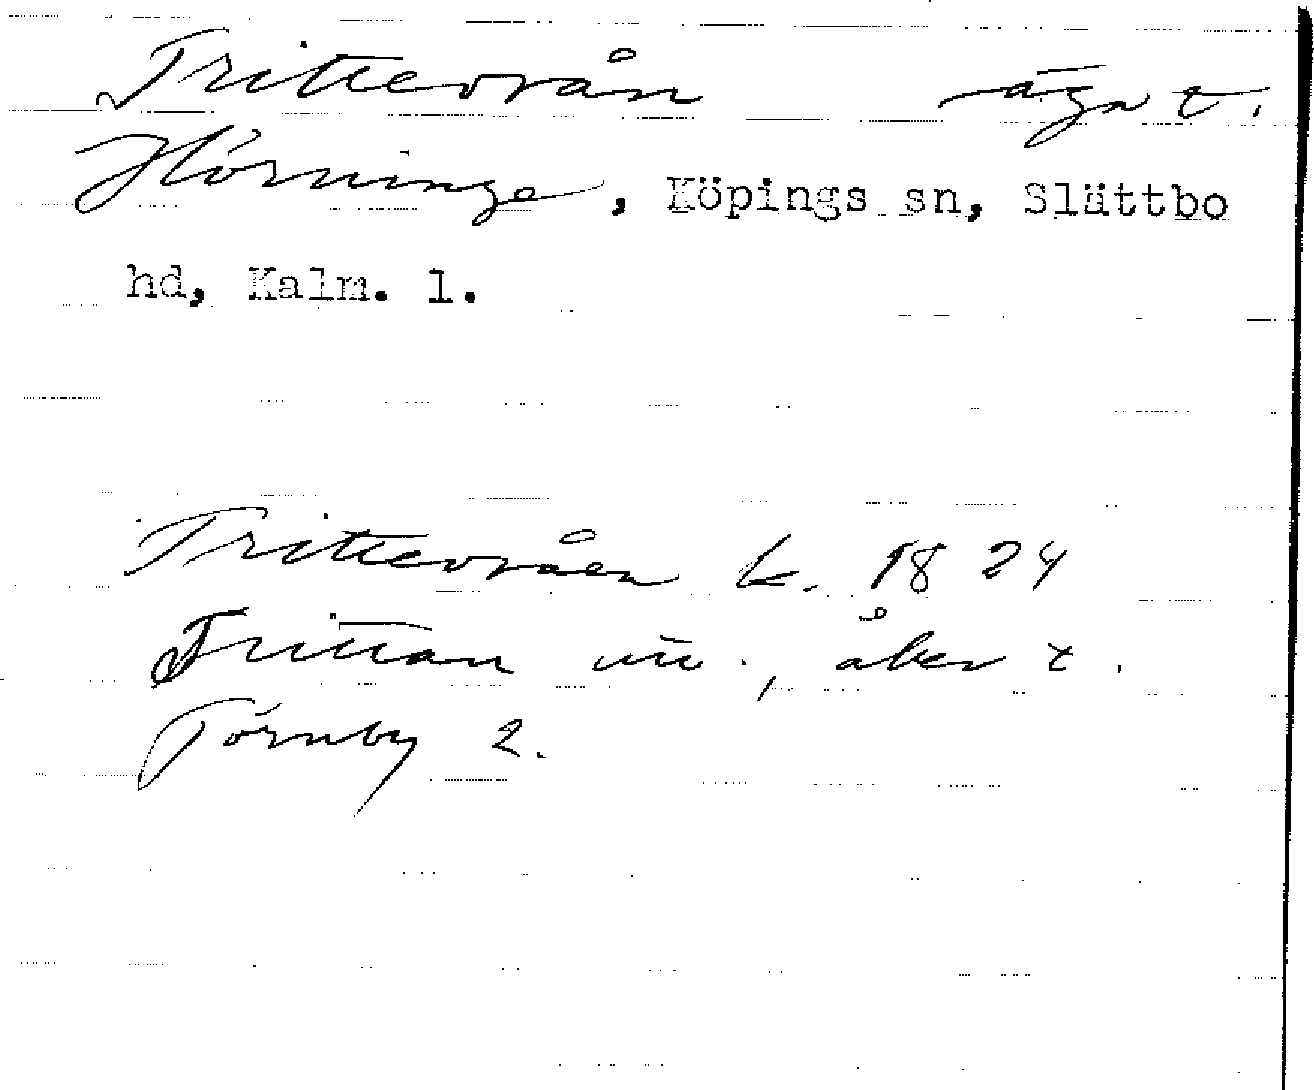 Trittevrån äga t.
Hörninge, Köpings sn, Slättbo
hd, Kalm. l.
Trittevråen k. 1824
Trittan nu., åker t.
Törnby 2.